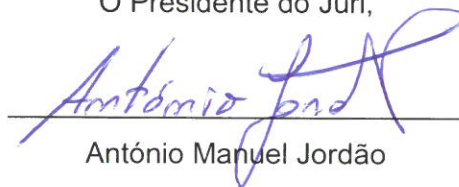 O Presidente do Júri,
António Jord
António Manuel Jordão